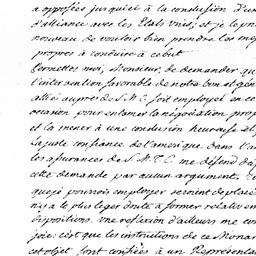 a opposées jusqu'ici à la conclusion d'un
d'alliance avec les États Unis; et je le pri
nouveau de vouloir bien prendre les me
propres à conduire à ce but
Permettes moi, Monsieur, de demander qu
l'intervention favorable de notre bon et gén
allié auprès de S. M. C. soit employé en ce
occasion pour entamer la négociation prop
et la mener à une conclusion heureuse et p
La juste confiance de l'amerique dans l'a
les assurances de S. M. T. C. me défend d'ap
cette demande par aucun argument.
que je pourrois employer seroient deplacé
n'a le plus leger doute à former relativem
dispositions. Une reflexion d'ailleurs me con
c'est que les instructions de ce Monar
cet objet sont confiées à un Représenta